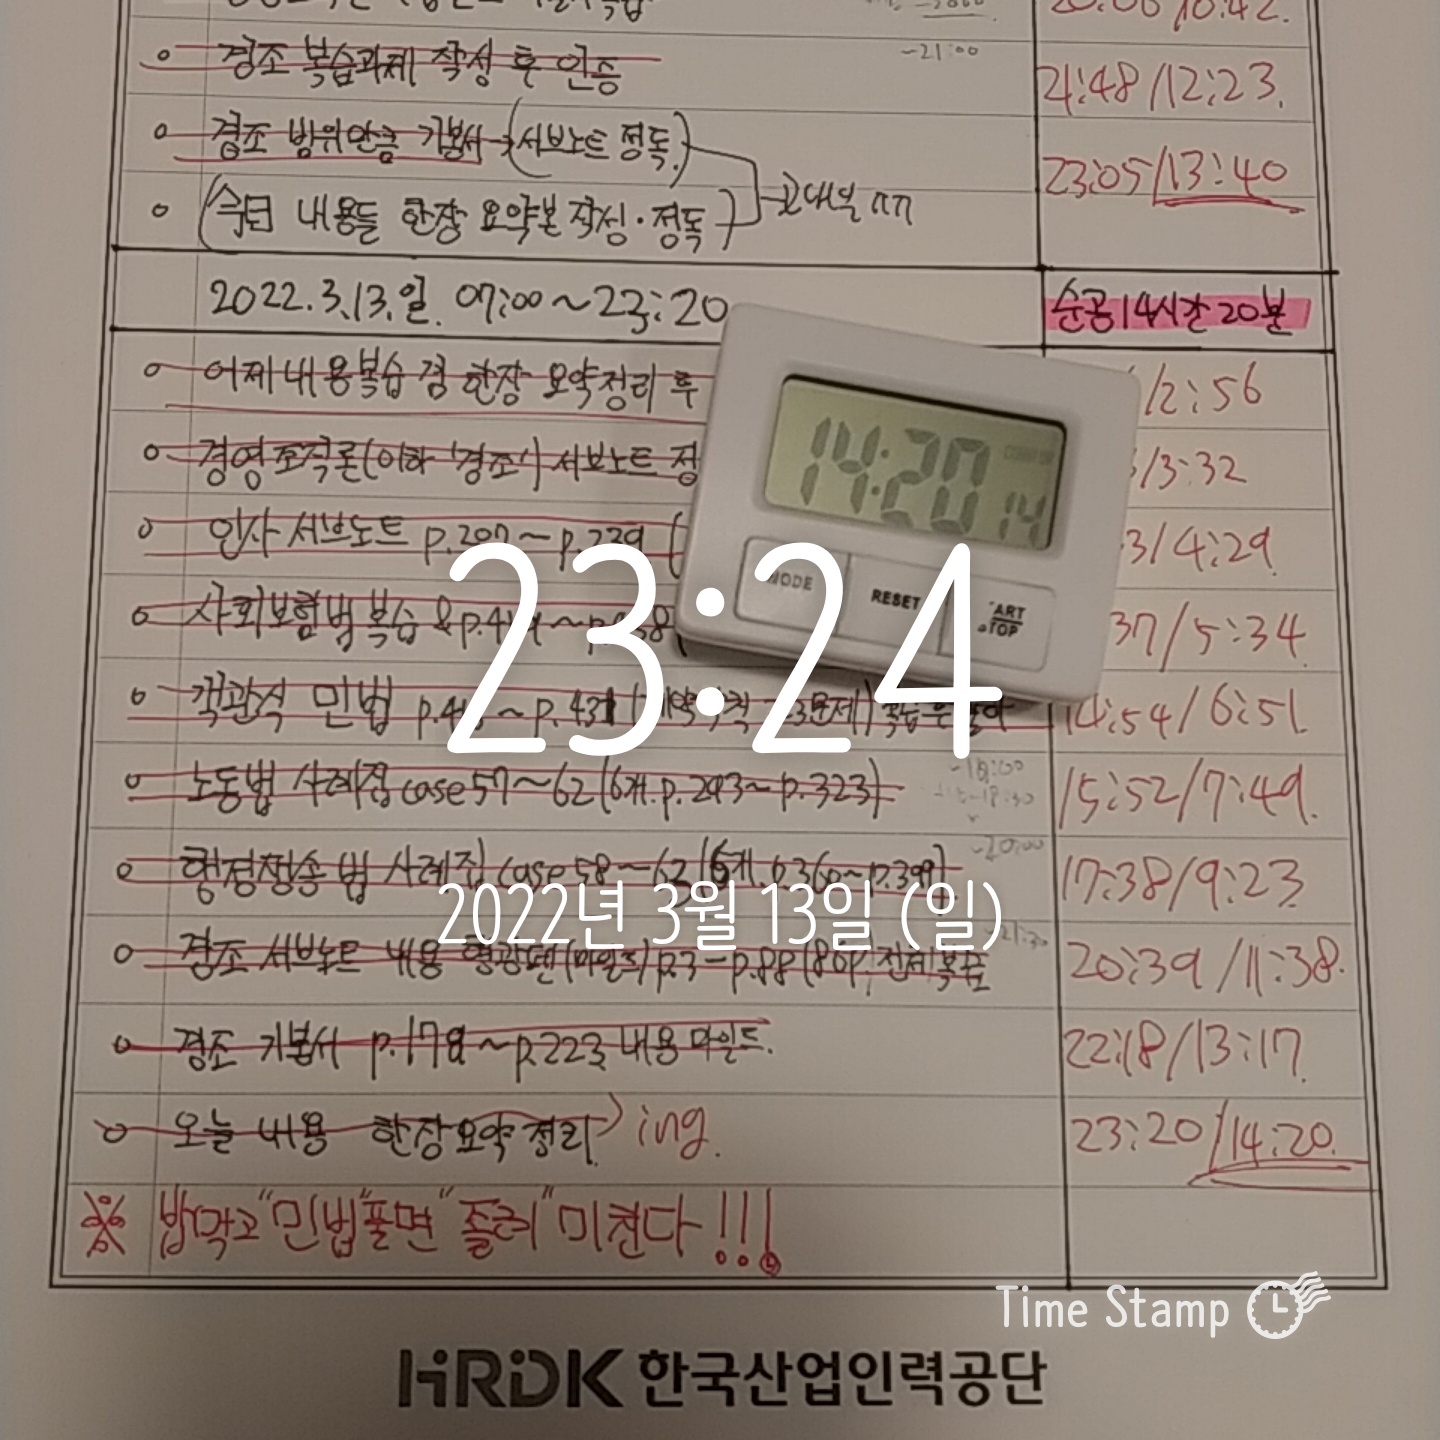 경조 복습과제 작성 후 인증
~21:00
21:48/12:23.
경조 범위만큼 기본서→(서브노트 정독.)
23:05/13:40
(금일 내용들 한장 요약본 작성·정독)
2022.3.13.일. 07:00~23:20
순공14시간20분
어제 내용복습 겸 한장 요약정리 후
/2:56
경영조직론(이하 '경조') 서브노트 정
/3:32
인사 서브노트 p.207~p.239 (
3/4:29.
사회보험법 복습 & p.
37/5:34.
객관식 민법 p.
14:54/6:51.
노동법 사례집 case57~62(6개.p.293~p.323)
~18:00
15:52/7:49.
행정쟁송법 사례집 case58~62
~20:00
17:38/9:23.
경조 서브노트 내용 형광펜(마일드)p.3-p.88(86p) 전체복습
~21:30
20:39/11:38.
경조 기본서 p.179~p.223 내용 마일드.
22:18/13:17.
오늘 내용 한장요약정리. ing.
23:20/14:20.
※ 밥먹고 "민법"풀면 "졸려" 미친다!!!
14:20 14
MODE
RESET
START
STOP
23:24
2022년 3월 13일 (일)
Time Stamp
HRDK 한국산업인력공단